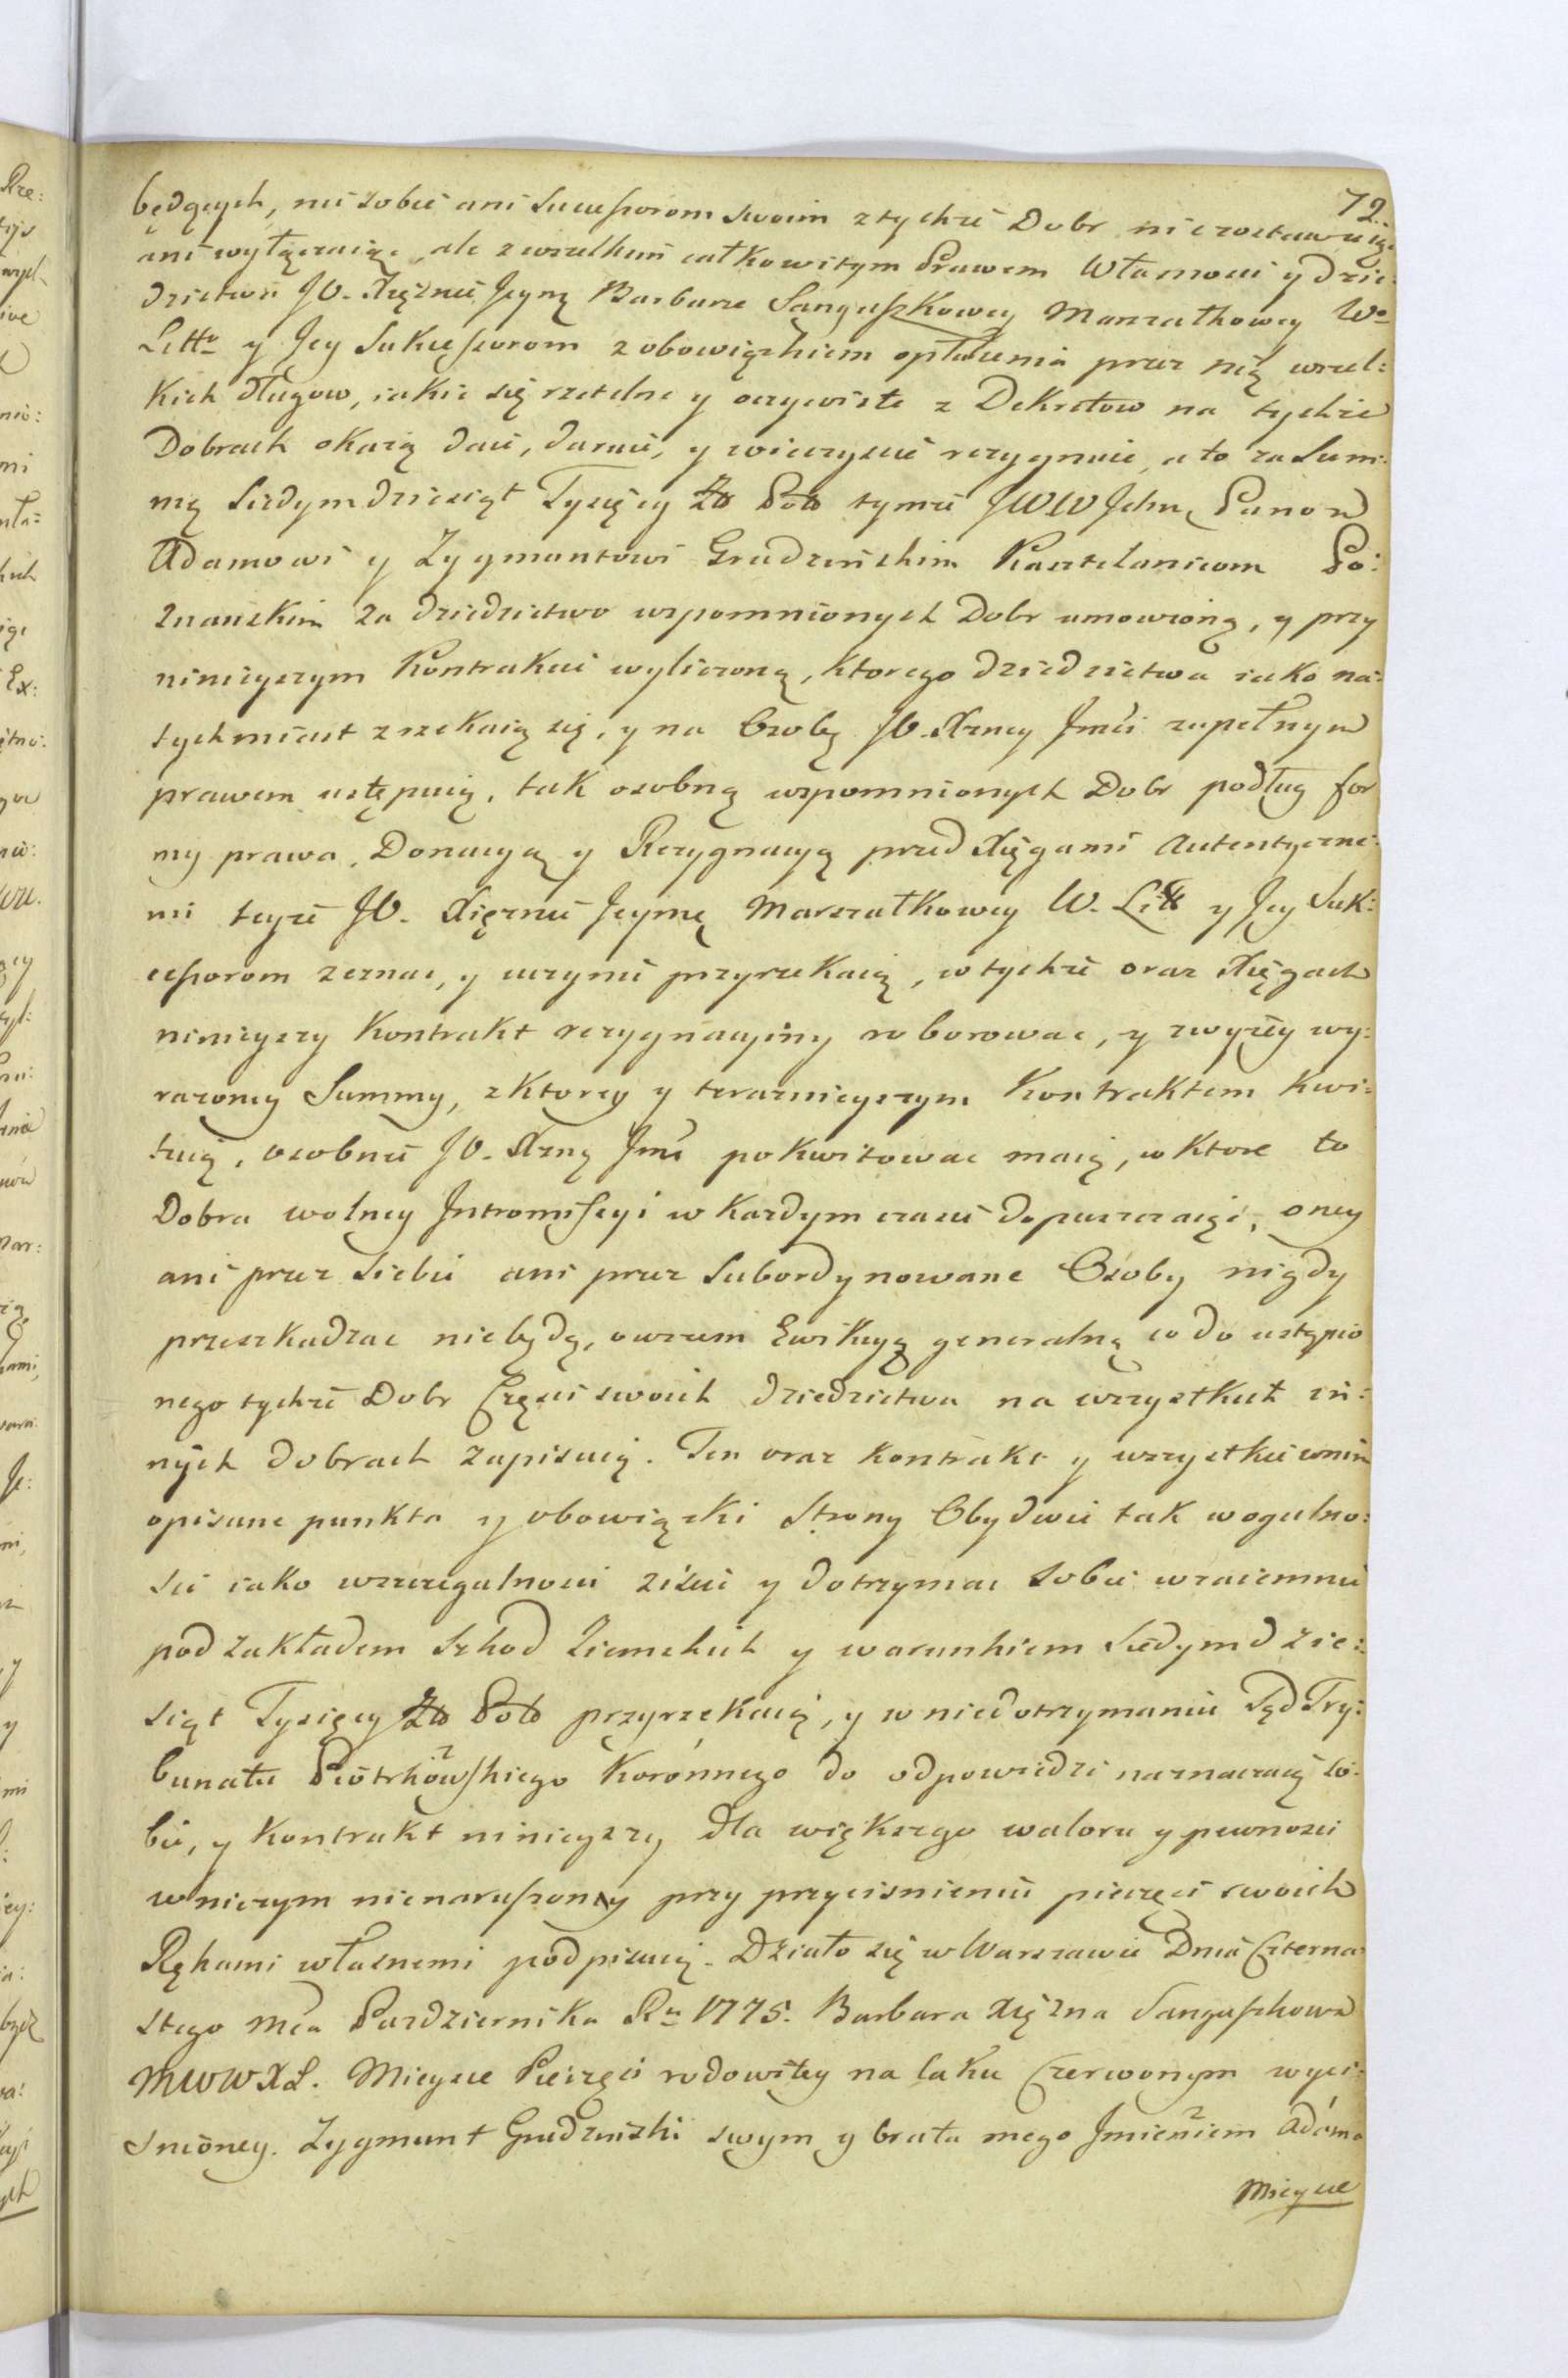 72.
będących, nic sobie ani Sukcessorom swoim z tychże Dobr nie zostawuiąc
ani wyłączaiąc, ale z wszelkim całkowitym Prawem Własności y Dzie:
dzictwa JO. Xiężnie Jeymę Barbarze Sanguszkowey Marszałkowey Wº
Littº y Jey Sukcessorom z obowiązkiem opłacenia przez nią wszel:
kich długow, iakie się rzetelne y oczywiste z Dekretow na tychże
Dobrach okażą daie, daruie, y wieczyście rezygnuie, a to za Sum:
mę Siedymdziesiąt Tysięcy Zło Pols tymże JWW Jchm Panom
Adamowi y Zygmuntowi Grudzińskim Kasztelanicom Po:
znańskim za dziedzictwo wspomnionych Dobr umowioną, y przy
ninieyszym Kontrakcie wyliczoną, ktorego dziedzictwa iako na:
tychmiast zrzekaią się, y na Osobę JO. Xżney Jmći zupełnym
prawem ustępuią, tak osobną wspomnionych Dobr podług for
my prawa, Donacyą y Rezygnacyą przed Xięgami Autentyczne:
mi teyże JO. Xięznie Jeymę Marszałkowey W. Litt y Jey Suk:
cessorom zeznać, y uczynić przyrzekaią, w tychże oraz Xięgach
ninieyszy Kontrakt rezygnacyiny roborować, y zwyżey wy:
rażoney Summy, z ktorey y teraznieyszym Kontraktem kwi:
tuią, osobnie JO. Xżnę Jmć pokwitować maią, w ktore to
Dobra wolney Intromissyi w każdym czasie dopuszczaiąc, oney
ani przez Siebie ani przez Subordynowane Osoby nigdy
przeszkadzać nie będą, owszem Ewikcyą generalną co do ustąpio
nego tychże Dobr Części swoich dziedzictwa na wszystkich in:
nych dobrach zapisuią. Ten oraz kontrakt y wszystkie w nim
opisane punkta y obowiązki Strony Obydwie tak w ogulno:
ści iako w szczegulności ziścić y dotrzymać sobie wzaiemnie
pod zakładem Szkod Ziemskich y warunkiem Siedymdzie:
siąt Tysięcy Zło Pols przyrzekaią, y w niedotrzymaniu Sąd Try:
bunału Piotrkowskiego Koronnego do odpowiedzi naznaczaią so:
bie, y Kontrakt ninieyszy dla większego waloru y pewności
w niczym nienaruszony przy przycisnieniu pieczęci swoich
Rękami własnemi podpisuią. Działo się w Warszawie Dnia Czterna
stego Mca Pazdziernika Rº 1775. Barbara Xiężna Sanguszkowa
MWWXL. Mieysce Pieczęci rodowitey na laku Czerwonym wyci:
snioney. Zygmunt Grudziński swym y brata mego Jmieniem Adama
Mieysce